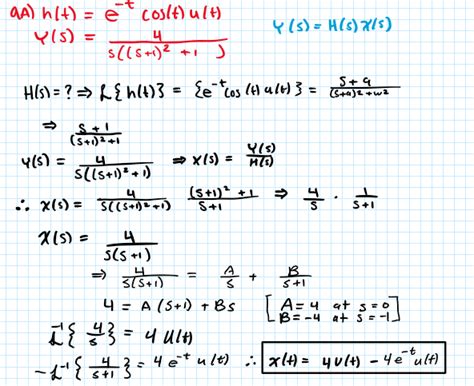 9A) h(t) = e^-t cos(t) u(t)
Y(s) = H(s) X(s)
Y(s) = 4 / s((s+1)^2 + 1)
H(s) = ? ⇒ L{h(t)} = {e^-t cos(t) u(t)} = s+a / (s+a)^2 + w^2
⇒ s+1 / (s+1)^2+1
Y(s) = 4 / s((s+1)^2+1) ⇒ X(s) = Y(s) / H(s)
∴ X(s) = 4 / s((s+1)^2+1) (s+1)^2 + 1 / s+1 ⇒ 4/s · 1 / s+1
X(s) = 4 / s(s+1)
⇒ 4 / s(s+1) = A/s + B / s+1
4 = A(s+1) + Bs [A = 4 at s=0
B = -4 at s=-1]
L^-1{4/s} = 4 u(t)
-L^-1{4 / s+1} = 4e^-t u(t) ∴ x(t) = 4u(t) - 4e^-t u(t)